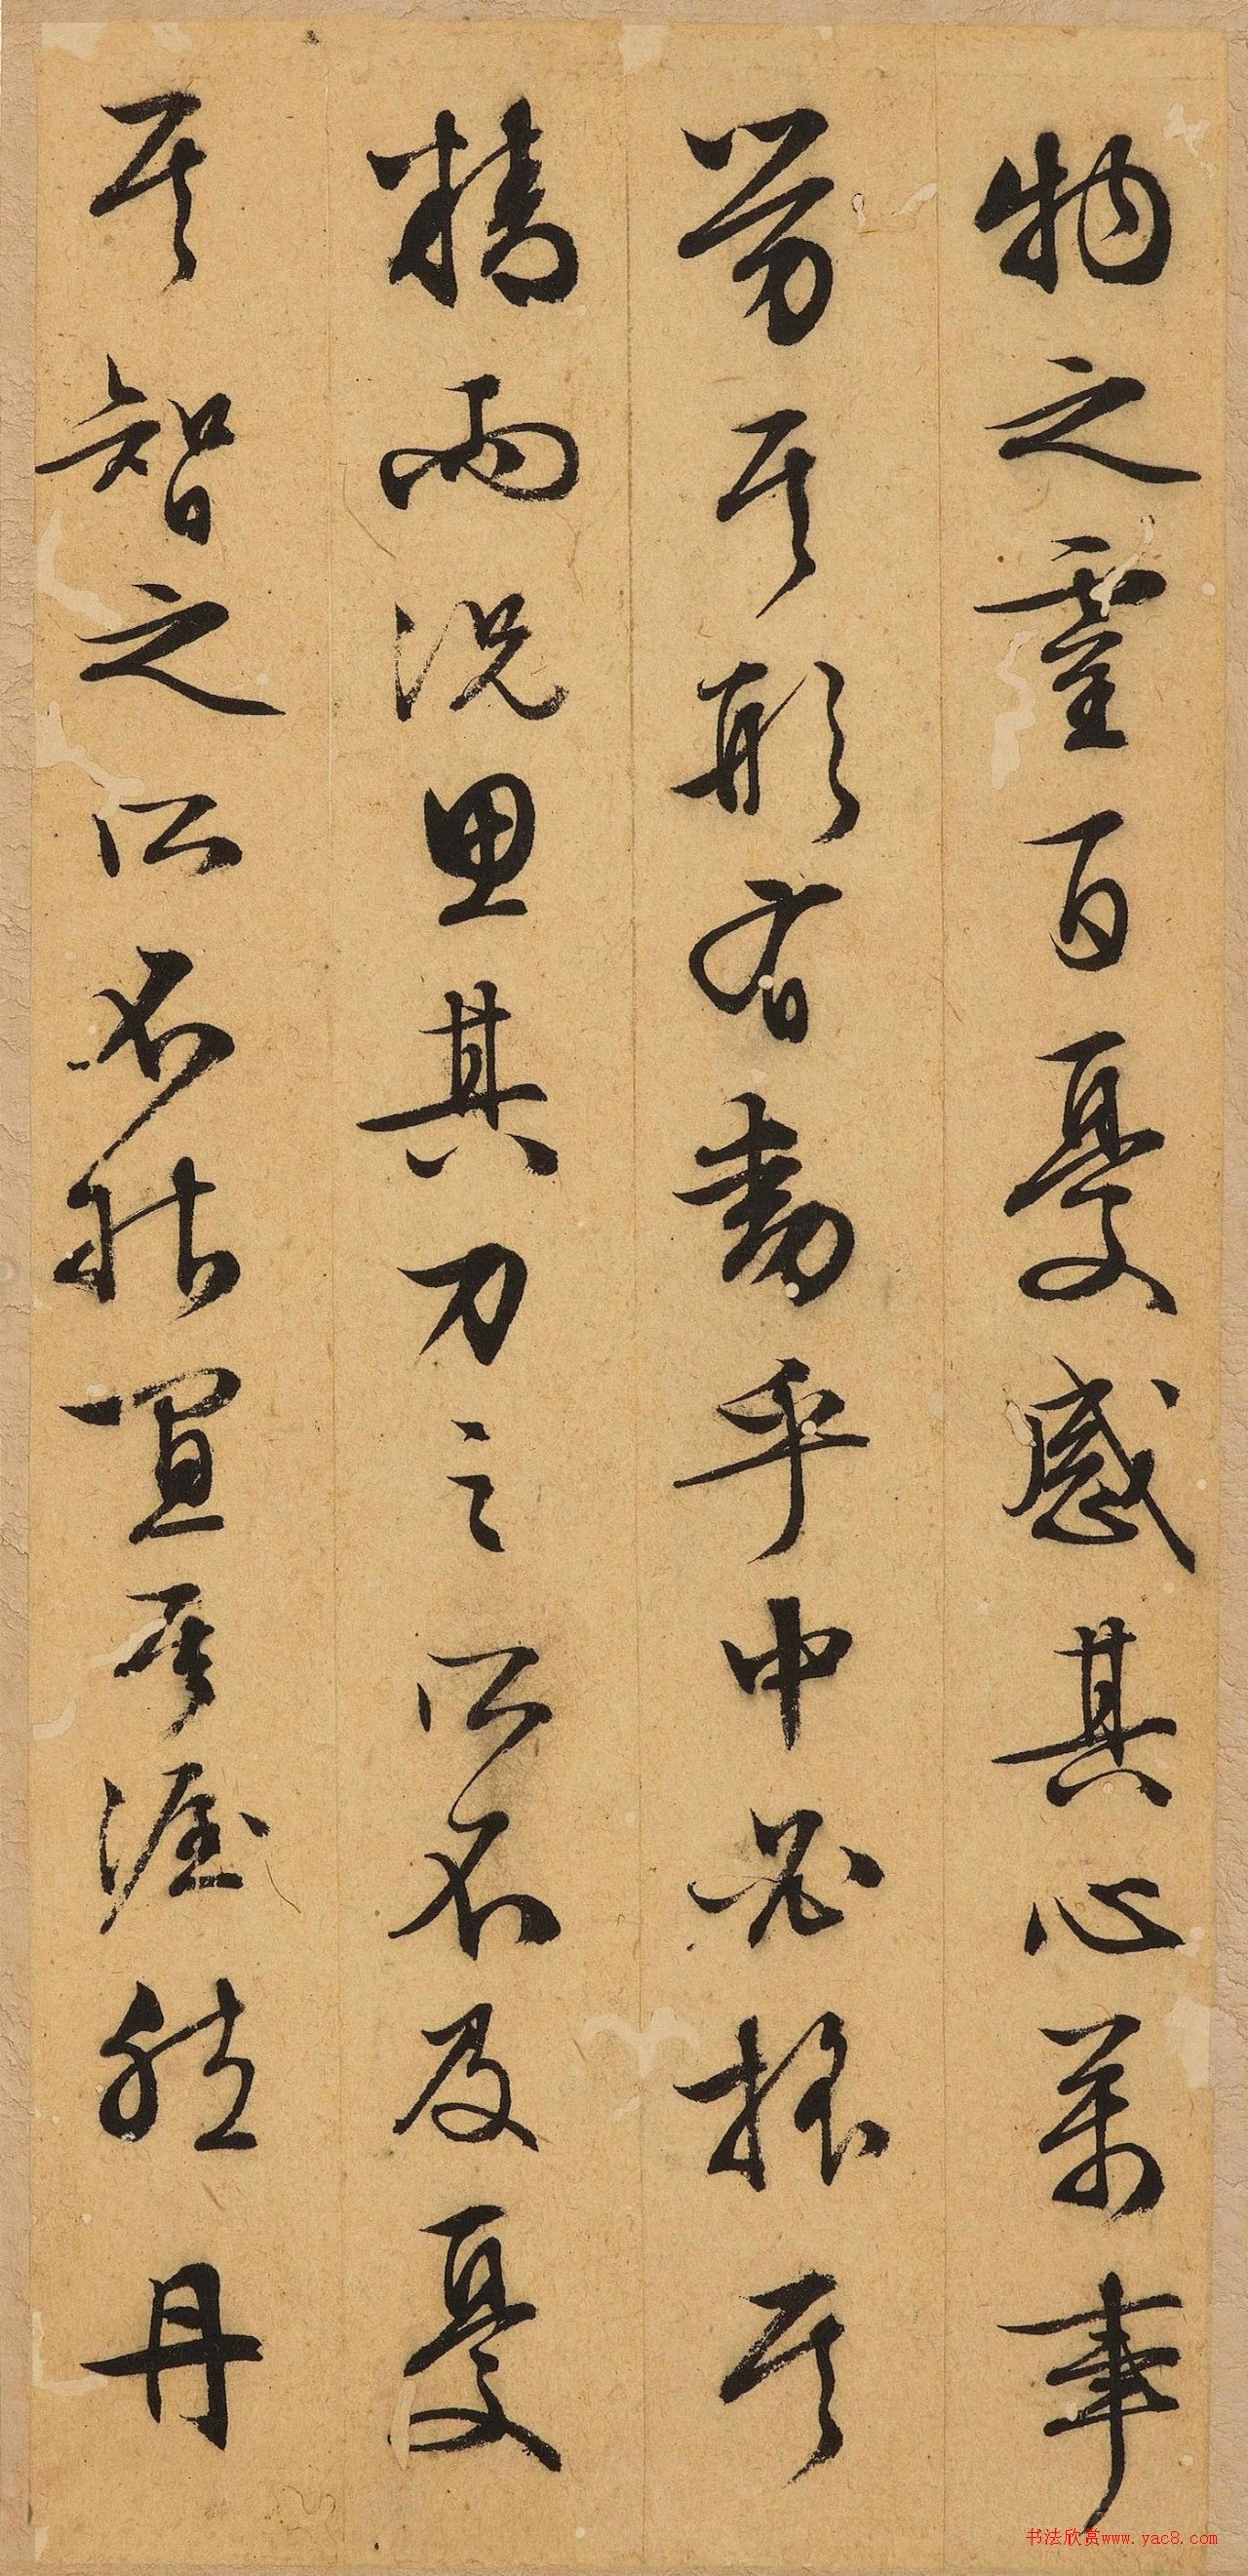 物之靈百憂感其心萬事
勞其形有動乎中必搖其
精而況思其力之所不及憂
其智之所不能宜其渥然丹
书法欣赏www.yac8.com